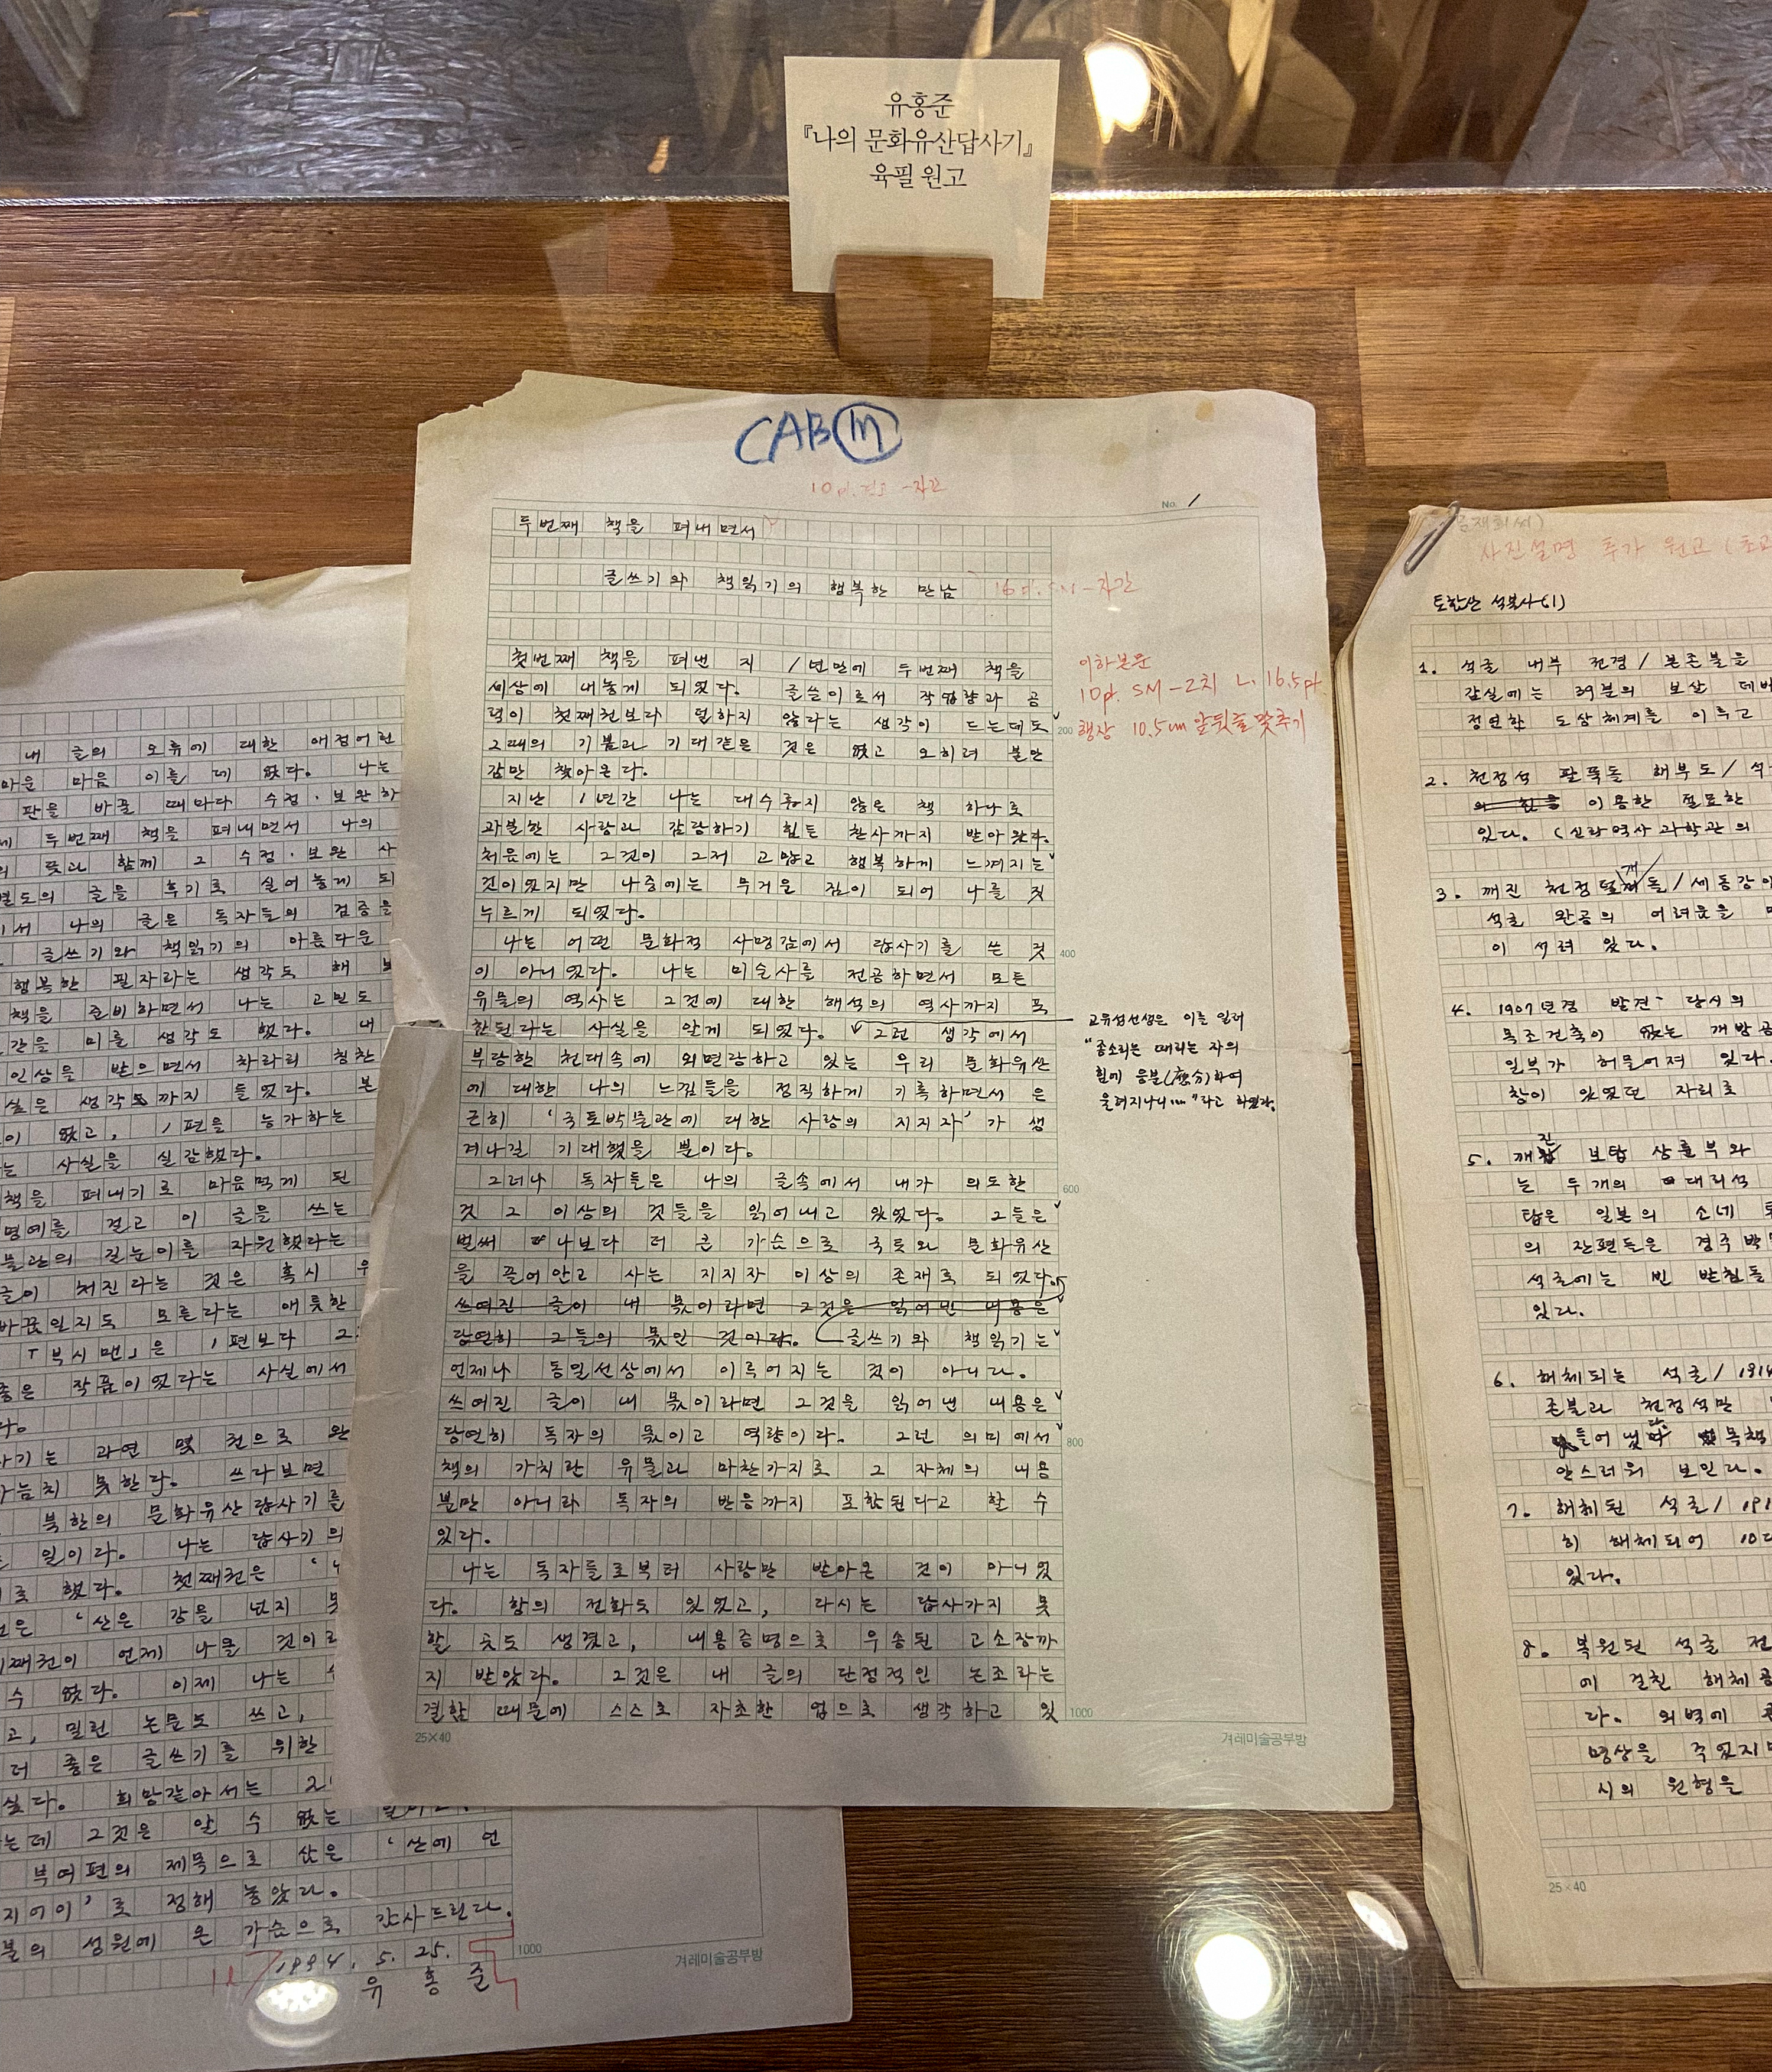 유홍준
『나의 문화유산답사기』
육필 원고
CAB
No. 1
두번째 책을 펴내면서
글쓰기와 책읽기의 행복한 만남
자간
첫번째 책을 펴낸 지 1년만에 두번째 책을
세상에 내놓게 되었다. 글쓴이로서 작업량과 공
력이 첫째권보다 덜하지 않다는 생각이 드는데도
그때의 기쁨과 기대같은 것은 없고 오히려 불안
감만 찾아온다.
지난 1년간 나는 대수롭지 않은 책 하나로
과분한 사랑과 감당하기 힘든 찬사까지 받아왔다.
처음에는 그것이 그저 고맙고 행복하게 느껴지는
것이었지만 나중에는 무거운 짐이 되어 나를 짓
누르게 되었다.
나는 어떤 문화적 사명감에서 답사기를 쓴 것
이 아니었다. 나는 미술사를 전공하면서 모든
유물의 역사는 그것에 대한 해석의 역사까지 포
함된다는 사실을 알게 되었다. 그런 생각에서
부당한 천대속에 외면당하고 있는 우리 문화유산
에 대한 나의 느낌들을 정직하게 기록하면서 은
근히 '국토박물관에 대한 사랑의 지지자'가 생
겨나길 기대했을 뿐이다.
그러나 독자들은 나의 글속에서 내가 의도한
것 그 이상의 것들을 읽어내고 있었다. 그들은
벌써 나보다 더 큰 가슴으로 국토와 문화유산
을 끌어안고 사는 지지자 이상의 존재로 되었다.
쓰여진 글이 내 몫이라면 그것을 읽어낸 내용은
당연히 그들의 몫인 것이다. 글쓰기와 책읽기는
언제나 동일선상에서 이루어지는 것이 아니다.
쓰여진 글이 내 몫이라면 그것을 읽어낸 내용은
당연히 독자의 몫이고 역량이다. 그런 의미에서
책의 가치란 유물과 마찬가지로 그 자체의 내용
뿐만 아니라 독자의 반응까지 포함된다고 할 수
있다.
나는 독자들로부터 사랑만 받아온 것이 아니었
다. 항의 전화도 있었고, 다시는 답사가지 못
할 곳도 생겼고, 내용증명으로 우송된 고소장까
지 받았다. 그것은 내 글의 단정적인 논조라는
결함 때문에 스스로 자초한 업으로 생각하고 있
200
400
600
800
1000
25×40
겨레미술공부방
이하본문
10p. SM-2치 L. 16.5p.
행장 10.5cm 앞뒷줄맞추기
고유섭선생은 이를 일러
"종소리는 때리는 자의
힘에 응분(應分)하여
울려지나니…"라고 하였다.
내 글의 오류에 대한 애정어린
마운 마음 이를 데 없다. 나는
판을 바꿀 때마다 수정·보완하
두번째 책을 펴내면서 나의
뜻과 함께 그 수정·보완 사
별도의 글을 후기로 실어 놓게 되
서 나의 글은 독자들의 검증을
글쓰기와 책읽기의 아름다운
행복한 필자라는 생각도 해 보
책을 준비하면서 나는 고민도
간을 미룰 생각도 했다. 내
인상을 받으면서 차라리 칭찬
싶은 생각까지 들었다. 본
이 없고, 1편을 능가하는
는 사실을 실감했다.
책을 펴내기로 마음먹게 된
명예를 걸고 이 글을 쓰는
물관의 길눈이를 자원했다는
글이 처진다는 것은 혹시 우
바꿈일지도 모른다는 애틋한
「부시맨」은 1편보다 2
좋은 작품이었다는 사실에서
다.
사기는 과연 몇 권으로 완
가늠치 못한다. 쓰다보면
북한의 문화유산답사기를
일이다. 나는 답사기의
로 했다. 첫째권은
은 '산은 강을 넘지 못
째권이 언제 나올 것이라
수 없다. 이제 나는
고, 밀린 논문도 쓰고,
더 좋은 글쓰기를 위한
싶다. 희망같아서는
는데 그것은 알 수 없는
부여편의 제목으로 삼은 '산에 언
지어이'로 정해 놓았다.
분의 성원에 온 가슴으로 감사드린다.
1994. 5. 25.
유홍준
1000
겨레미술공부방
사진설명 추가 원고 (초교
토함산 석불사(1)
1. 석굴 내부 전경/본존불을
감실에는 39분의 보살
정연한 도상체계를 이루고
2. 천정석 팔뚝돌 해부도/석
이용한 절묘한
있다. (신라역사과학관의
3. 깨진 천정덮개돌/세동강이
석굴 완공의 어려움을
이 서려 있다.
4. 1907년경 발견 당시의
목조건축이 없는 개방공
일부가 허물어져 있다.
창이 있었던 자리로
5. 깨진 보탑 상륜부와
는 두개의 대리석
탑은 일본의 소네
의 잔편들은 경주박
석굴에는 빈 받침돌
있다.
6. 해체되는 석굴/1914
존불과 천정석만
들어냈다 목책
안스러워 보인다.
7. 해체된 석굴/191
히 해체되어 10대
있다.
8. 복원된 석굴 전
에 걸친 해체공
다. 외벽에
명상을 주었지만
시의 원형을
25×40